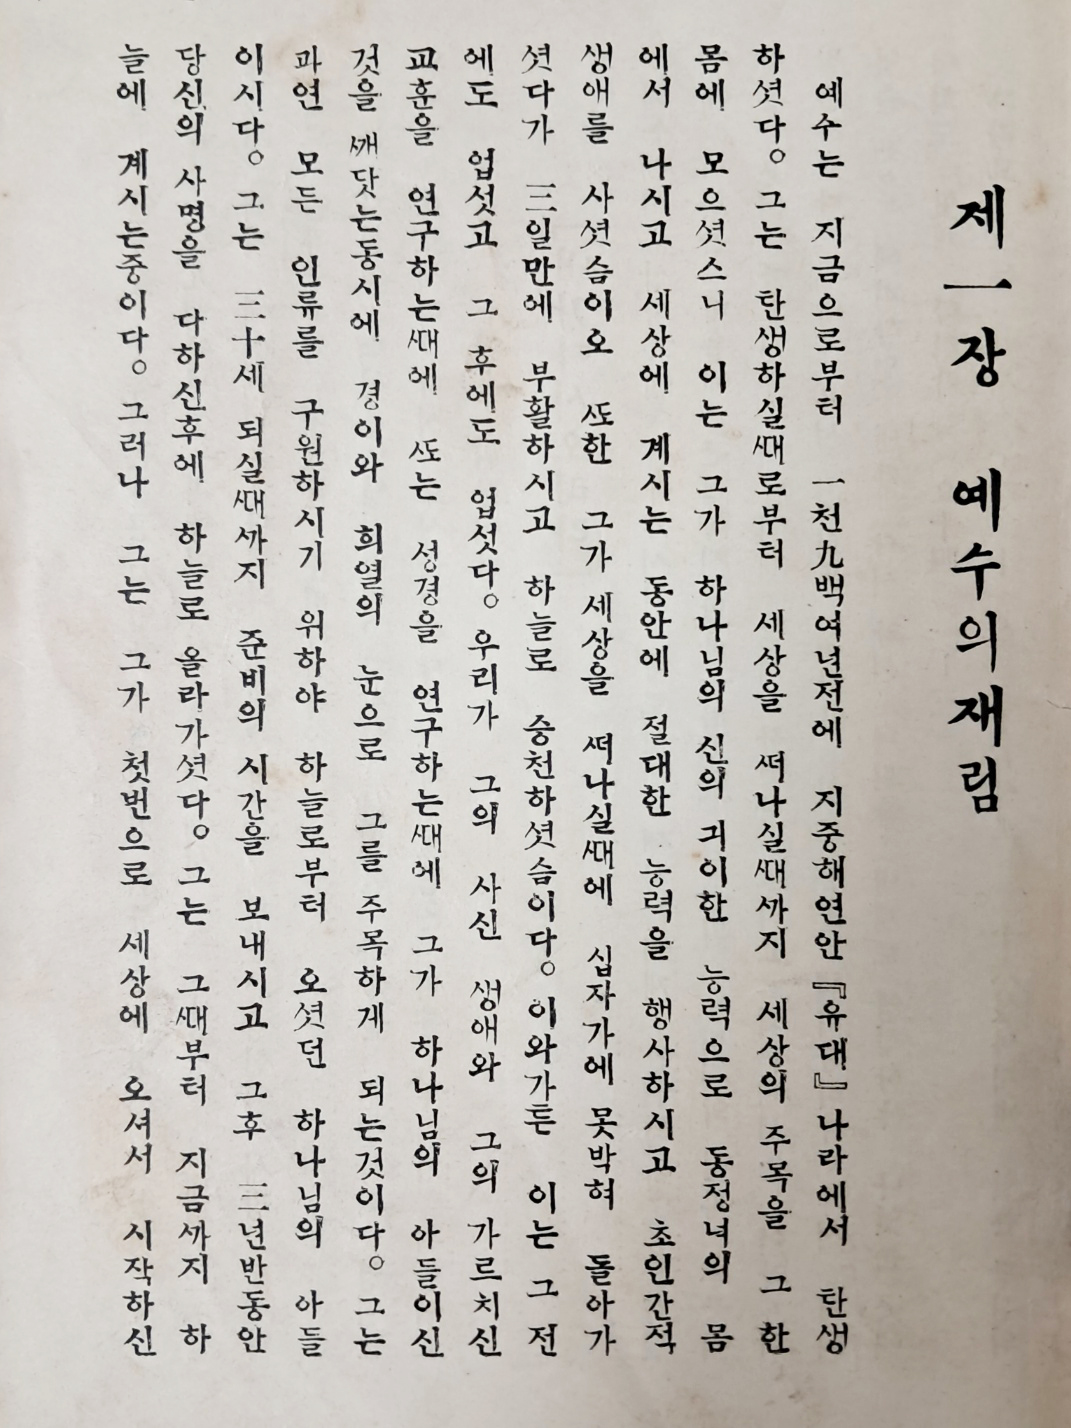 제一장 예수의재림
예수는 지금으로부터 一천九백여년전에 지중해연안『유대』나라에서 탄생
하셧다。그는 탄생하실ᄯᅢ로부터 세상을 ᄯᅥ나실ᄯᅢᄭᅡ지 세상의 주목을 그 한
몸에 모으셧스니 이는 그가 하나님의 신의 긔이한 능력으로 동정녀의 몸
에서 나시고 세상에 계시는 동안에 절대한 능력을 행사하시고 초인간적
생애를 사셧슴이오 ᄯᅩ한 그가 세상을 ᄯᅥ나실ᄯᅢ에 십자가에 못박혀 돌아가
셧다가 三일만에 부활하시고 하늘로 승천하셧슴이다。이와가튼 이는 그 전
에도 업섯고 그 후에도 업섯다。우리가 그의 사신 생애와 그의 가르치신
교훈을 연구하는ᄯᅢ에 ᄯᅩ는 성경을 연구하는ᄯᅢ에 그가 하나님의 아들이신
것을 ᄭᅢ닷는동시에 경이와 희열의 눈으로 그를 주목하게 되는것이다。그는
과연 모든 인류를 구원하시기 위하야 하늘로부터 오셧던 하나님의 아들
이시다。그는 三十세 되실ᄯᅢᄭᅡ지 준비의 시간을 보내시고 그후 三년반동안
당신의 사명을 다하신후에 하늘로 올라가셧다。그는 그ᄯᅢ부터 지금ᄭᅡ지 하
늘에 계시는중이다。그러나 그는 그가 첫번으로 세상에 오셔서 시작하신